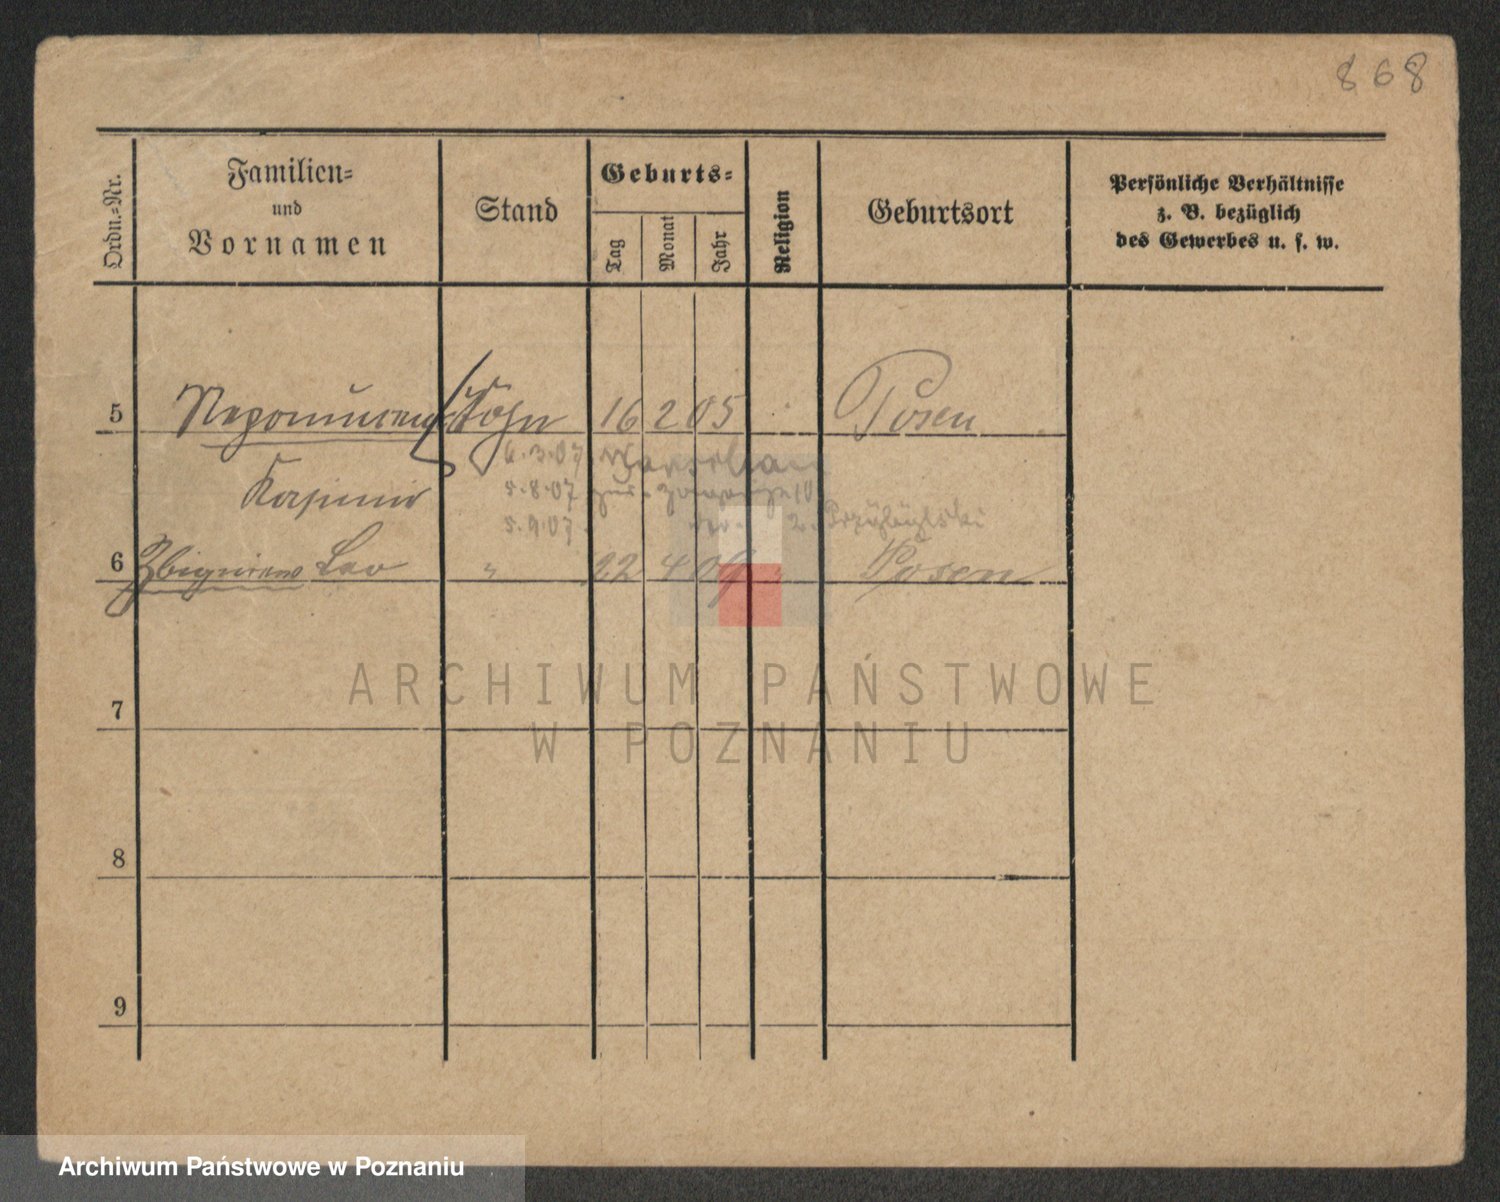 868
Ordn.=Nr.
Familien=
und
Vornamen
Stand
Geburts=
Tag
Monat
Jahr
Religion
Geburtsort
Persönliche Verhältnisse
z. B. bezüglich
des Gewerbes u. s. w.
5 Sohn 16 2 05 Posen
6.3.07
Kasimir
5.8.07
5.9.07
6 Zbigniew Leo " 22 4 09 Posen
7
8
9
ARCHIWUM PAŃSTWOWE
W POZNANIU
Archiwum Państwowe w Poznaniu